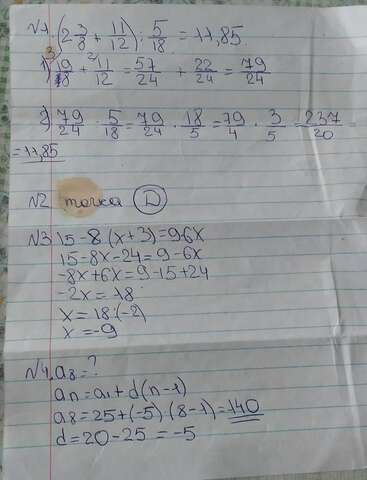 №1. (2 3/8 + 11/12) : 5/18 = 11,85
1) 19/8 + 11/12 = 57/24 + 22/24 = 79/24
2) 79/24 : 5/18 = 79/24 · 18/5 = 79/4 · 3/5 = 237/20 =
= 11,85
№2 точка D
№3 15-8(x+3)=96x
15-8x-24=9-6x
-8x+6x=9-15+24
-2x=18
x=18:(-2)
x=-9
№4. a8=?
an=a1+d(n-1)
a8=25+(-5)(8-1)=140
d=20-25=-5